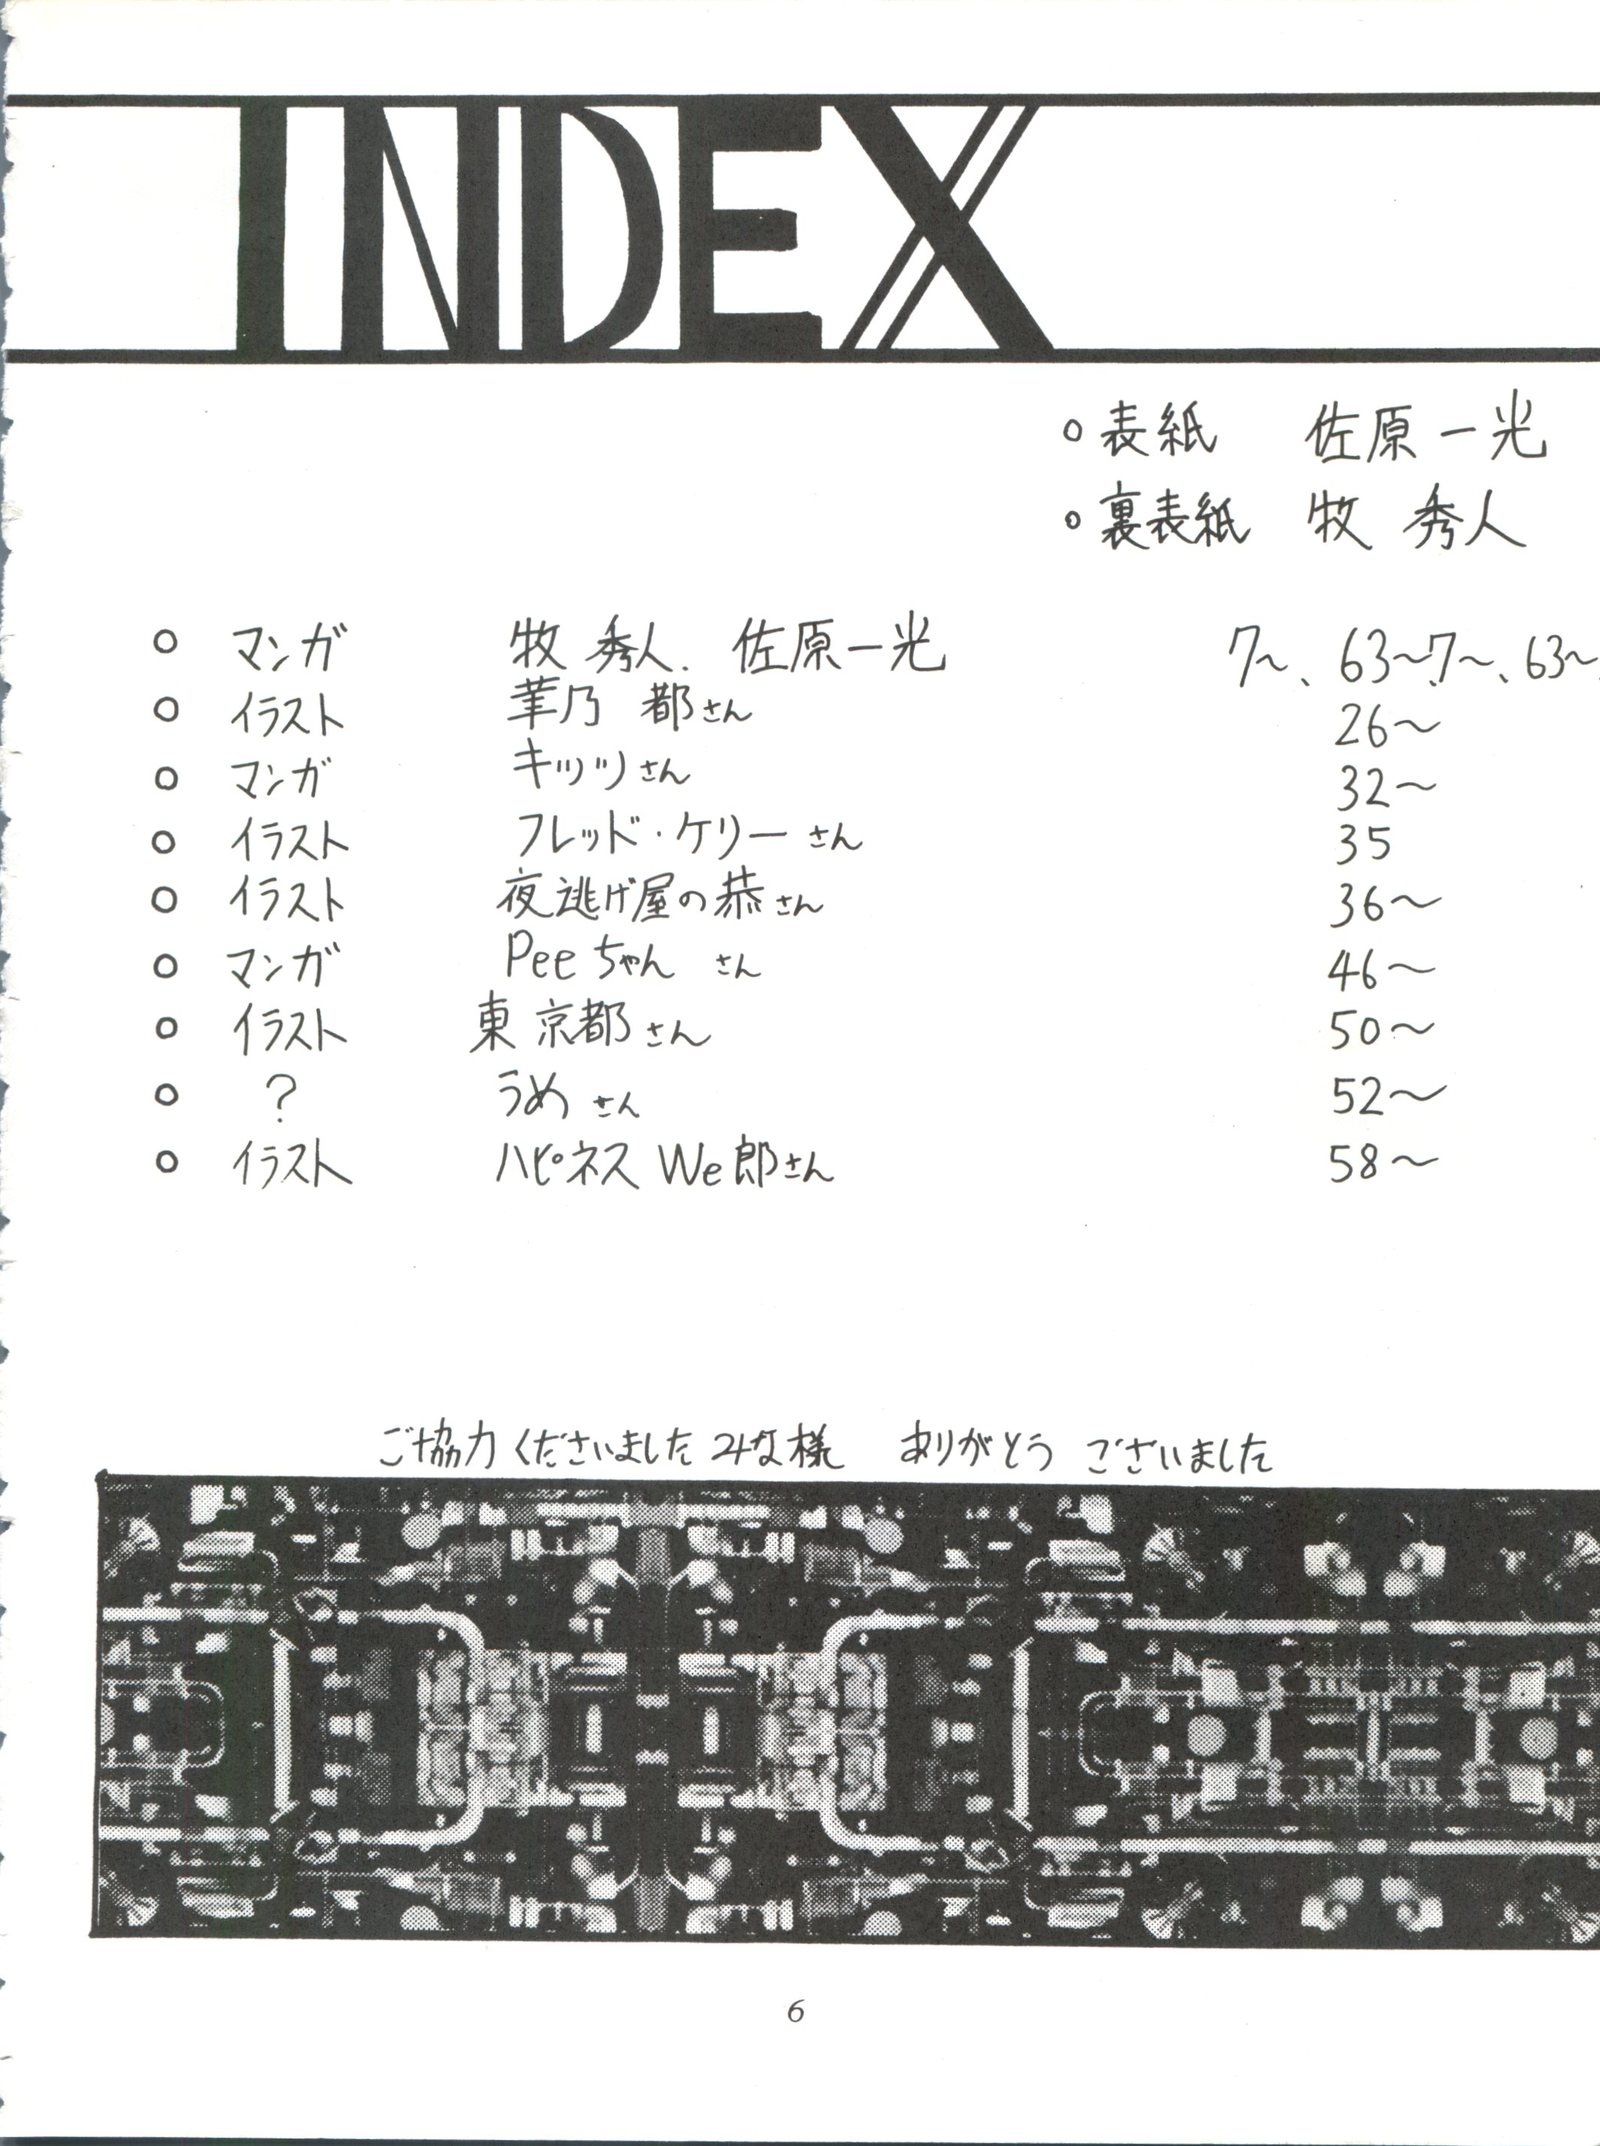 INDEX
○ 表紙 佐原一光
○ 裏表紙 牧 秀人
○ マンガ 牧 秀人、佐原一光 7〜、63〜7〜、63〜
○ イラスト 華乃 都さん 26〜
○ マンガ キッツさん 32〜
○ イラスト フレッド・ケリーさん 35
○ イラスト 夜逃げ屋の恭さん 36〜
○ マンガ Peeちゃん さん 46〜
○ イラスト 東京都さん 50〜
○ ? うめさん 52〜
○ イラスト ハピネスWe郎さん 58〜
ご協力くださいましたみな様 ありがとう ございました
6